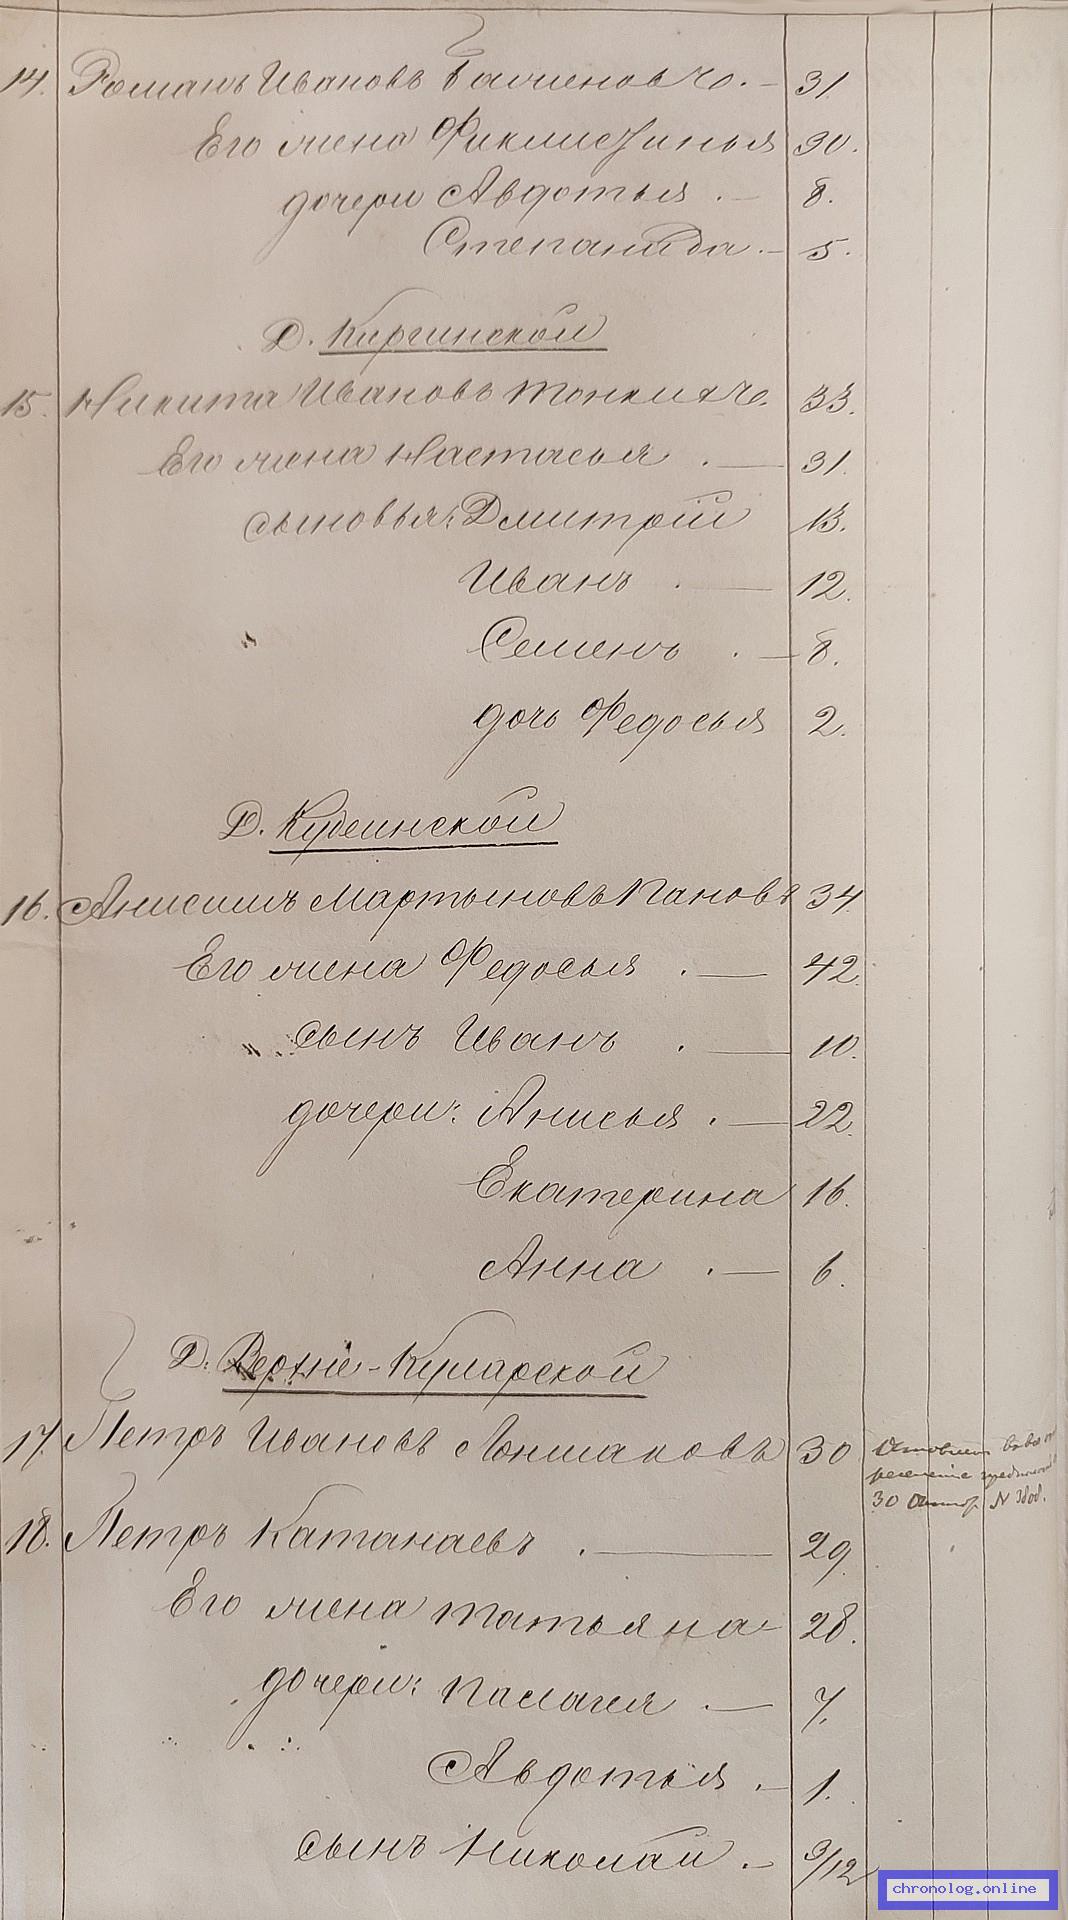 14. Романъ Ивановъ 31
Его жена 30.
дочери Авдотья . — 8.
Степанида . — 5.
Д. Киргинской
15. Никита Ивановъ Тонкихъ. 33.
Его жена Настасья . — 31.
сыновья: Дмитрій 13.
Иванъ . — 12.
Семенъ . — 8.
дочь Федосья 2.
Д. Кубеинской
16. Анисимъ Мартыновъ Пановъ 34
Его жена Федосья . — 42.
" сынъ Иванъ . — 10.
дочери: Анисья . — 22.
Екатерина 16.
Анна . — 6.
Д. Верхне-Кумарской
17. Петръ Ивановъ Лоншаковъ 30
30 N 3808.
18. Петръ Катанаевъ . — 29
Его жена Татьяна - 28.
дочери: Палагея . — 7.
Авдотья . — 1.
сынъ Николай . — 9/12
chronolog.online